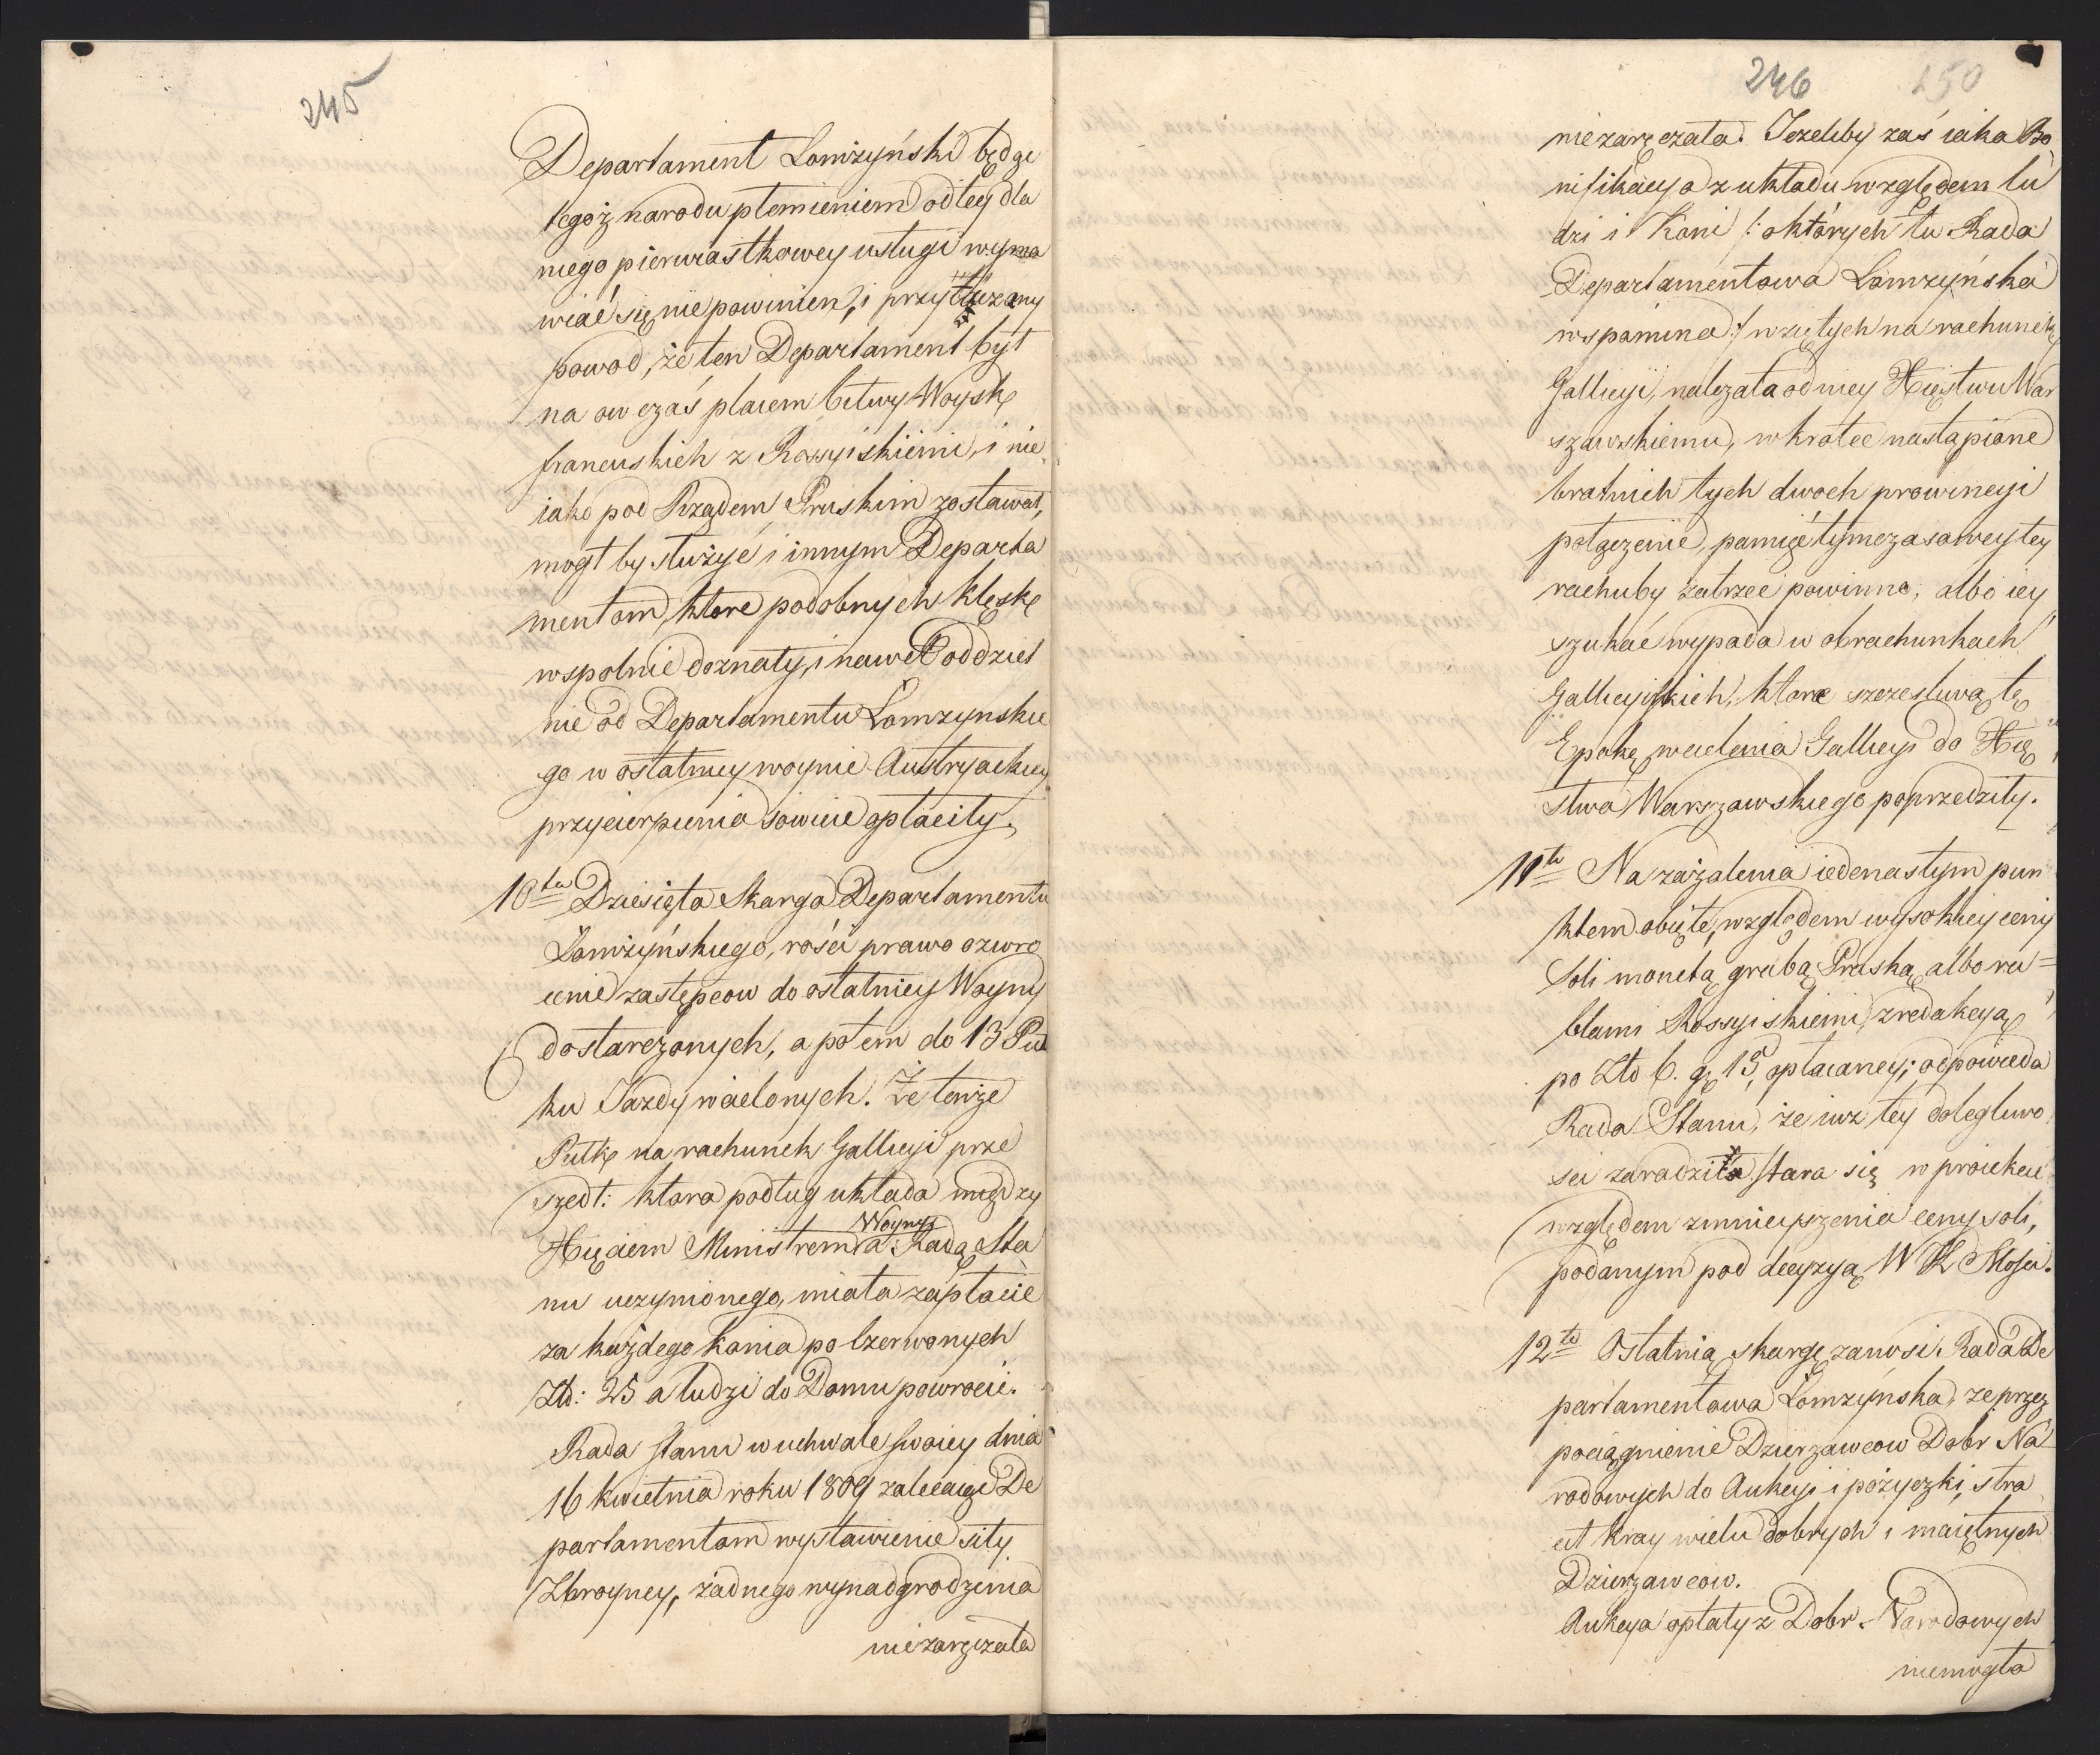 245
Departament Łomżyński będąc
tegoż narodu plemieniem od tey dla
niego pierwiastkowey usługi wyma
wiać się nie powinien, i przytoczony
powod, że ten Departament był
na ow czas placem bitwy Woysk
francuskich z Rossyiskiemi, i nie
iako pod Rządem Pruskim zostawał,
mogłby służyć i innym Departa
mentom, ktore podobnych klęsk
wspolnie doznały, i nawet oddziel
nie od Departamentu Łomzynskie
go w ostatniey woynie Austryackiey
przycierpienia sowicie opłaciły.
10te Dziesiąta Skarga Departamentu
Łomżyńskiego, rości prawo o zwro
cenie zastępcow do ostatniey Woyny
dostarczonych, a potem do 13 Puł
ku Jazdy wcielonych. Że tenże
Pułk na rachunek Gallicyi prze
szedł: ktora podług układa między
Xięciem Ministrem Woyny a Radą Sta
nu uczynionego, miała zapłacić
za każdego konia po Czerwonych
Zło: 25 a ludzi do Domu powrocić.
Rada Stanu w uchwale swoiey dnia
16 kwietnia roku 1809 zalecaiąc De
partamentom wystawienie siły
Zbroyney, żadnego wynadgrodzenia
nie zaręczała
246 150
nie zaręczała. Jezeliby zaś iaka Bo
nifikacya z układu względem lu
dzi i Koni /: o których tu Rada
Departamentowa Łomzyńska
wspomina :/ wziętych na rachunek
Gallicyi, należała od niey Xięstwu War
szawskiemu, wkrotce nastąpione
bratnich tych dwoch prowincyi
połączenie, pamięć tymczasowey tey
rachuby zatrzeć powinno, albo iey
szukać wypada w obrachunkach
Gallicyiskich, ktore szczesliwą tę
Epokę wcielenia Gallicyi do Xię
stwa Warszawskiego poprzedziły.
11te Na zażalenia iedenastym pun
ktem obięte, względem wysokiey ceny
Soli monetą grubą Pruską albo ru=
blami Rossyiskiemi, z redukcyą
po Zło 6. gr 15, opłacaney; odpowieda
Rada Stanu, że iuz tey dolegliwo
sci zaradzić stara się w proiekcie
względem zmnieyszenia ceny soli,
podanym pod decyzyą W K Mosci.
12te Ostatnią skargę zanosi Rada De
partamentowa Łomzyńska, ze przez
pociągnienie Dzierzawcow Dobr Na
rodowych do Aukcyi i pożyczki, stra
cił kray wielu dobrych i maiętnych
Dzierzawcow.
Aukcya opłaty z Dobr Narodowych
niemogła